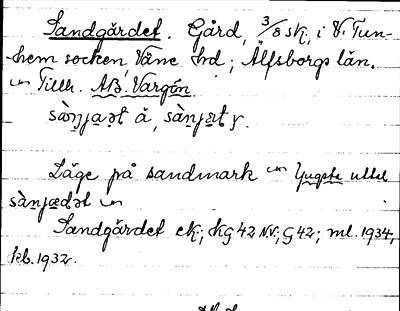 Sandgärdet. Gård, 3/8 sk, i V. Tun-
hem socken Väne hd; Älfsborgs län.
Tillh. AB. Vargön
Läge på sandmark Yngste uttal
Sandgärdet ek; kg 42 NV; G 42; ml. 1934,
feb. 1932.